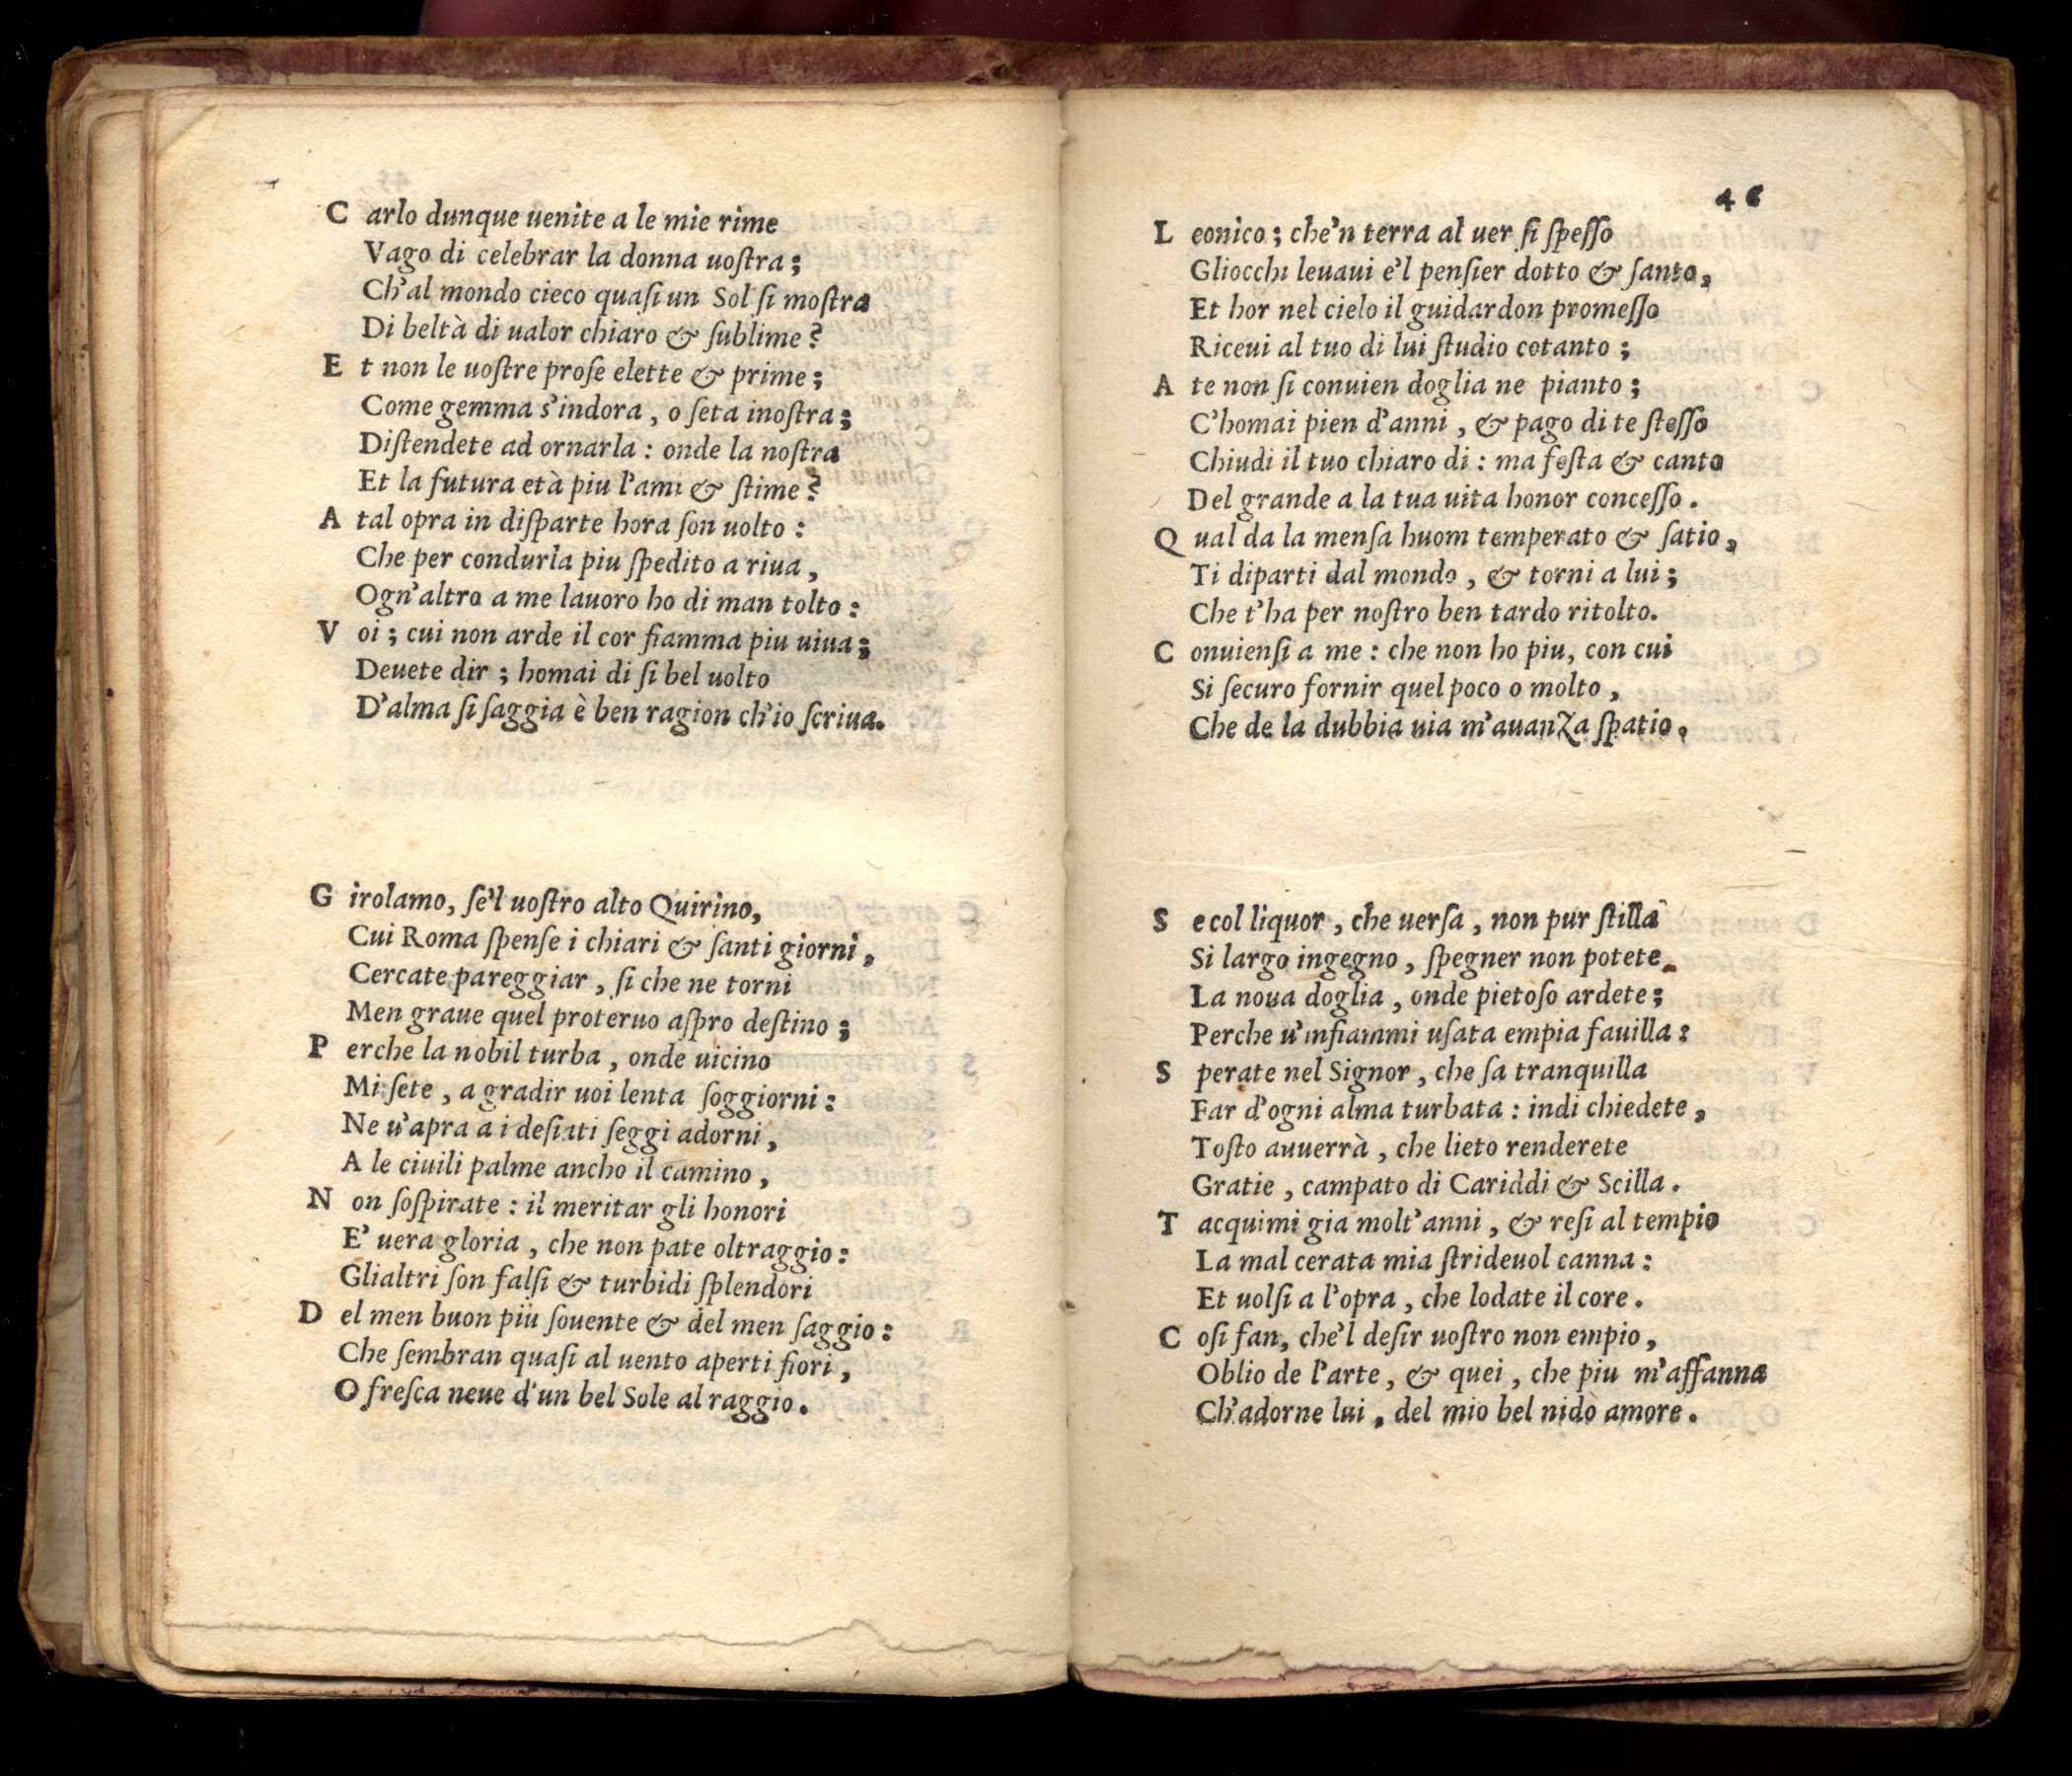 C arlo dunque uenite a le mie rime
Vago di celebrar la donna uoſtra;
Ch'al mondo cieco quaſi un Sol ſi moſtra
Di beltà di ualor chiaro & ſublime?
E t non le uoſtre proſe elette & prime;
Come gemma s'indora, o ſeta inoſtra;
Diſtendete ad ornarla: onde la noſtra
Et la futura età piu l'ami & ſtime?
A tal opra in diſparte hora ſon uolto:
Che per condurla piu ſpedito a riua,
Ogn'altro a me lauoro ho di man tolto:
V oi; cui non arde il cor fiamma piu uiua;
Deuete dir; homai di ſi bel uolto
D'alma ſi ſaggia è ben ragion ch'io ſcriua.
G irolamo, ſe'l uoſtro alto Quirino,
Cui Roma ſpenſe i chiari & ſanti giorni,
Cercate pareggiar, ſi che ne torni
Men graue quel proteruo aſpro deſtino;
P erche la nobil turba, onde uicino
Mi ſete, a gradir uoi lenta ſoggiorni:
Ne u'apra a i deſiati ſeggi adorni,
A le ciuili palme ancho il camino,
N on ſoſpirate: il meritar gli honori
E' uera gloria, che non pate oltraggio:
Glialtri ſon falſi & turbidi ſplendori
D el men buon più ſouente & del men ſaggio:
Che ſembran quaſi al uento aperti fiori,
O freſca neue d'un bel Sole al raggio.
46
L eonico; che'n terra al uer ſi ſpeſſo
Gliocchi leuaui e'l penſier dotto & ſanto,
Et hor nel cielo il guidardon promeſſo
Riceui al tuo di lui ſtudio cotanto;
A te non ſi conuien doglia ne pianto;
C'homai pien d'anni, & pago di te ſteſſo
Chiudi il tuo chiaro di: ma feſta & canto
Del grande a la tua uita honor conceſſo.
Q ual da la menſa huom temperato & ſatio,
Ti diparti dal mondo, & torni a lui;
Che t'ha per noſtro ben tardo ritolto.
C onuienſi a me: che non ho piu, con cui
Si ſecuro fornir quel poco o molto,
Che de la dubbia uia m'auanza ſpatio.
S e col liquor, che uerſa, non pur ſtilla
Si largo ingegno, ſpegner non potete
La noua doglia, onde pietoſo ardete;
Perche u'infiammi uſata empia fauilla:
S perate nel Signor, che ſa tranquilla
Far d'ogni alma turbata: indi chiedete,
Toſto auuerrà, che lieto renderete
Gratie, campato di Cariddi & Scilla.
T acquimi gia molt'anni, & reſi al tempio
La mal cerata mia ſtrideuol canna:
Et uolſi a l'opra, che lodate il core.
C oſi fan, che'l deſir uoſtro non empio,
Oblio de l'arte, & quei, che piu m'affanna
Ch'adorne lui, del mio bel nido amore.